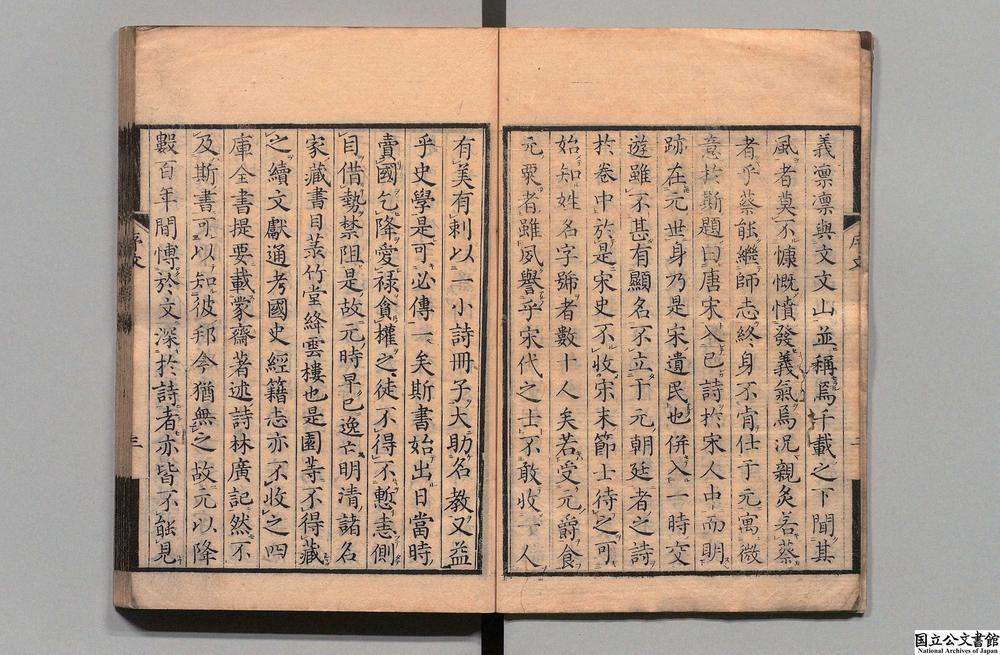 義凛凛與文文山並稱焉千載之下聞其
風者莫不慷慨憤發義氣焉况親炙若蔡
者乎蔡能繼師志終身不肯仕于元寓微
意於斯題曰唐宋入已詩於宋人中而明
跡在元世身乃是宋遺民也併入一時交
遊雖不甚有顯名不立于元朝廷者之詩
於卷中於是宋史不收宋末節士待之可
始知姓名字號者數十人矣若受元爵食
元粟者雖夙譽乎宋代之士不敢收一人
序文
三
有美有刺以一小詩冊子大助名教又益
乎史學是可必傳一矣斯書始出日當時
賣國乞降愛祿貪權之徒不得不慙恚側
目借勢禁阻是故元時早已逸亡明清諸名
家藏書目菉竹堂絳雲樓也是園等不得藏
之續文獻通考國史經籍志亦不收之四
庫全書提要載蒙齋著述詩林廣記然不
及斯書可以知彼邦今猶無之故元以降
數百年間博於文深於詩者亦皆不能見
序文
三
国立公文書館
National Archives of Japan